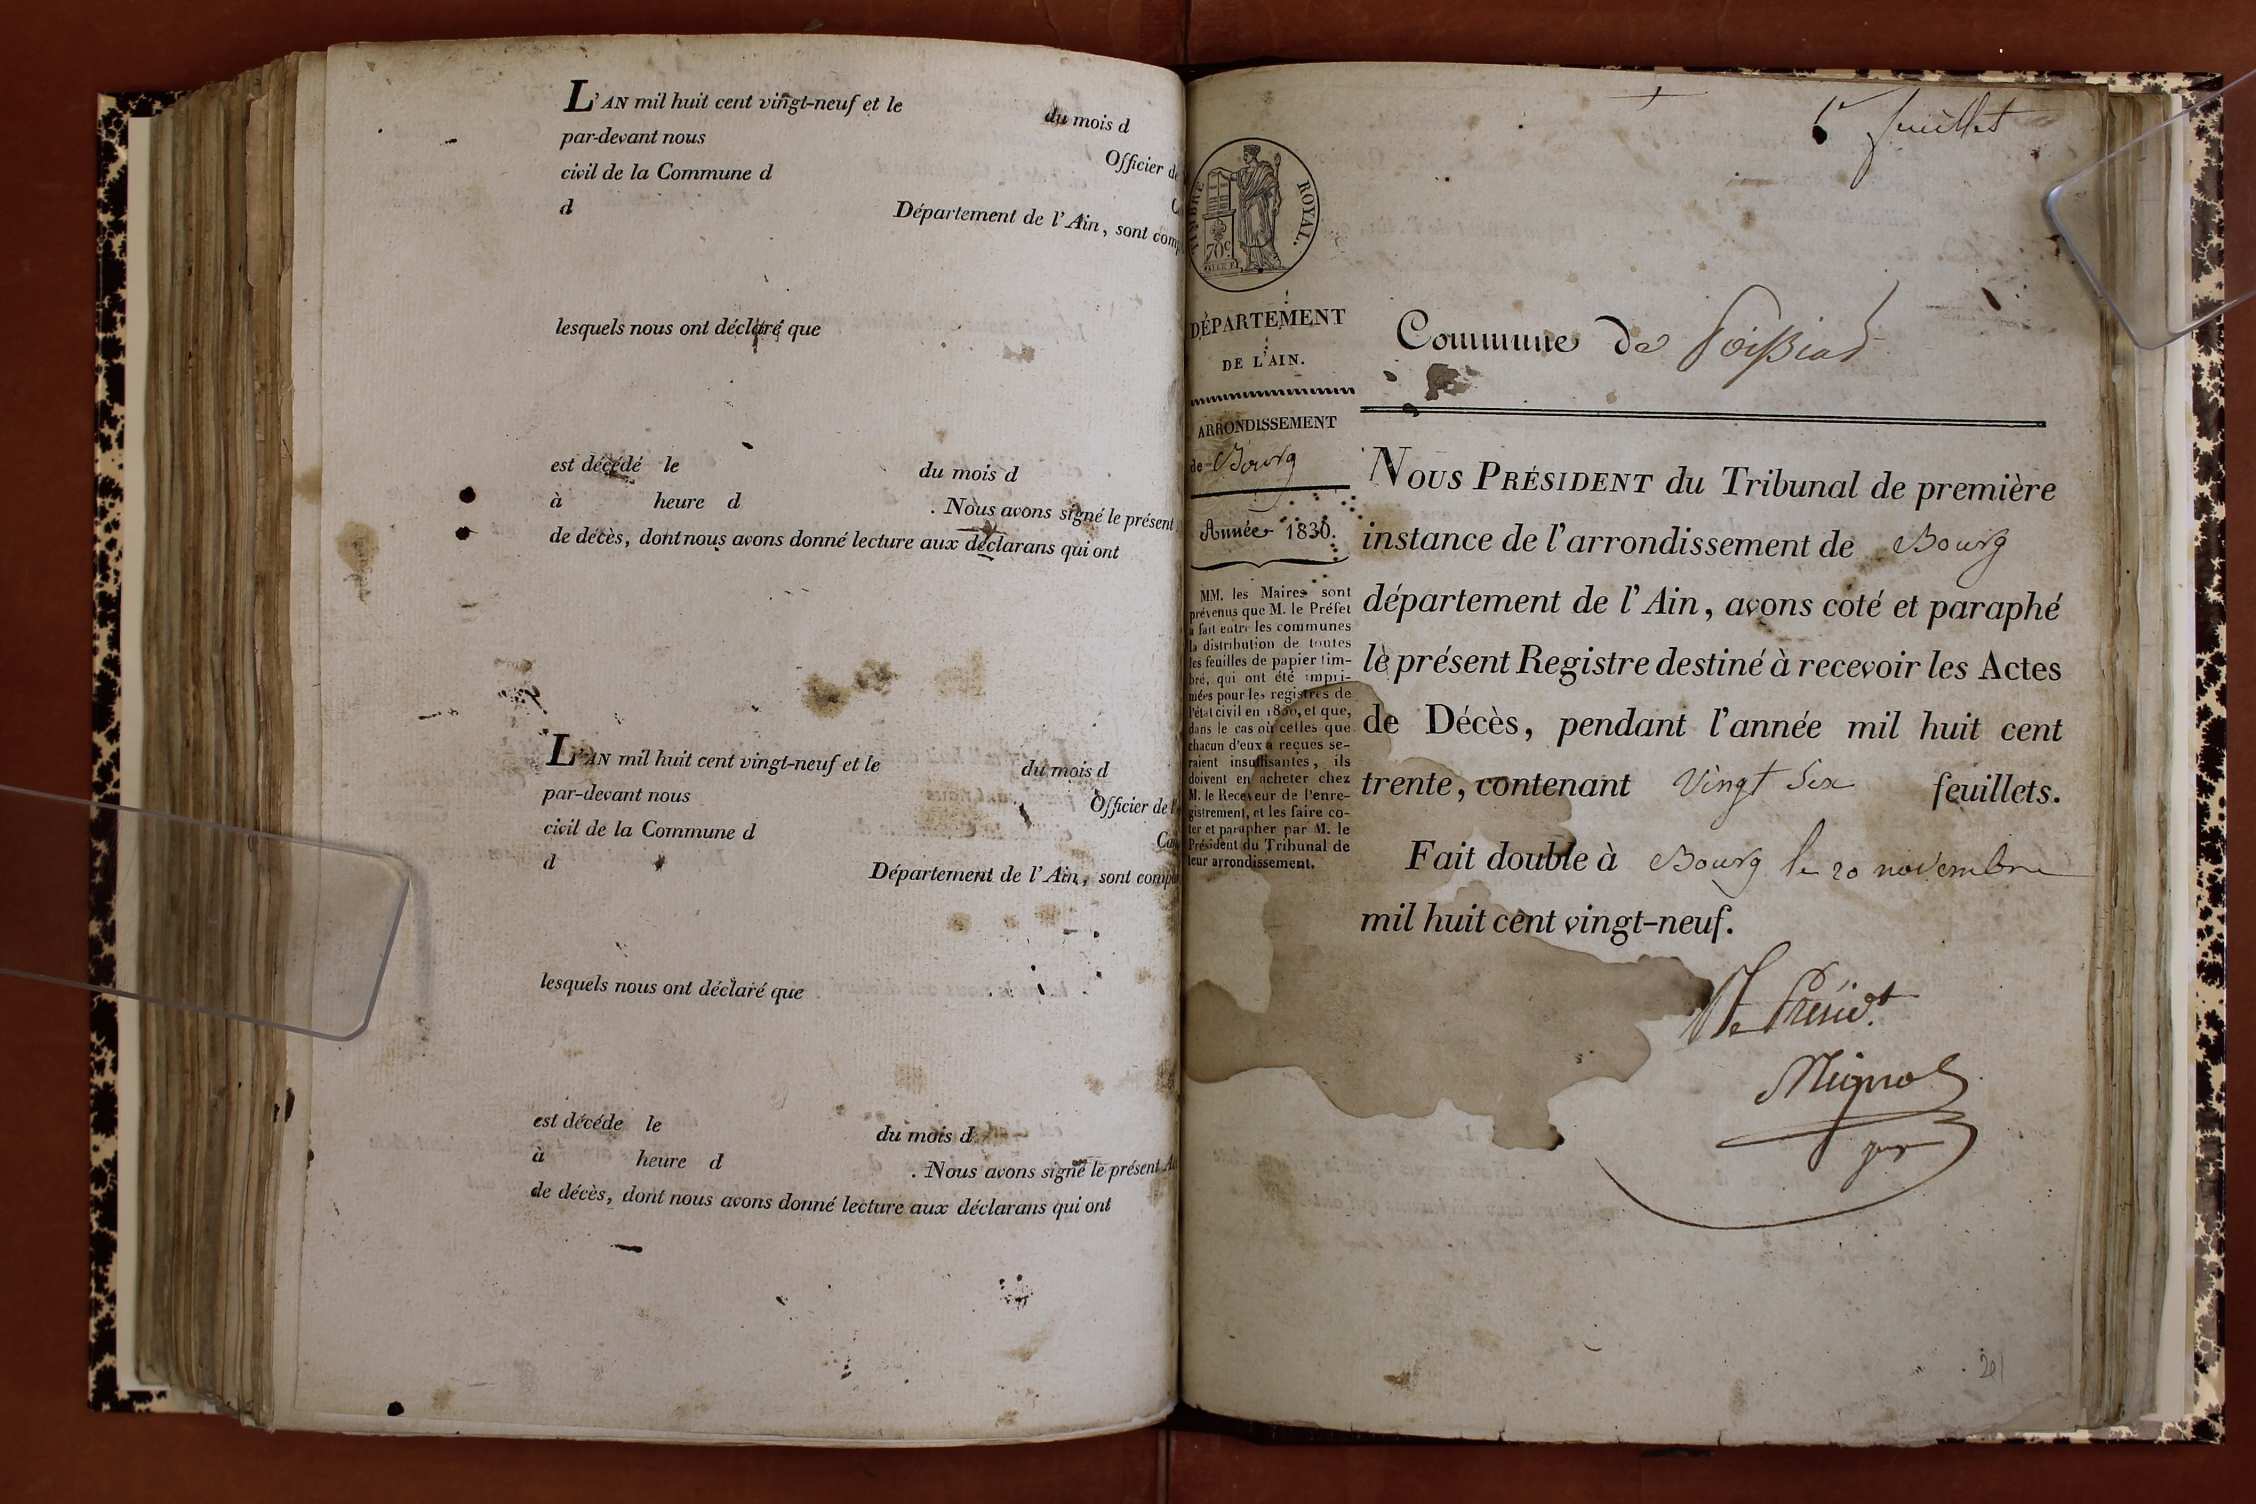 L'AN mil huit cent vingt-neuf et le du mois d
par-devant nous Officier de
civil de la Commune d
d Département de l'Ain, sont comp
lesquels nous ont déclaré que
est décédé le du mois d
à heure d . Nous avons signé le présent
de décès, dont nous avons donné lecture aux déclarans qui ont
L'AN mil huit cent vingt-neuf et le du mois d
par-devant nous Officier de l'
civil de la Commune d
d Département de l'Ain, sont comp
lesquels nous ont déclaré que
est décédé le du mois d
à heure d . Nous avons signé le présent
de décès, dont nous avons donné lecture aux déclarans qui ont
1r feuillet
TIMBRE ROYAL.
70c.
DÉPARTEMENT
DE L'AIN.
ARRONDISSEMENT
de Bourg
Année 1830.
MM. les Maires sont
prévenus que M. le Préfet
a fait entre les communes
la distribution de toutes
les feuilles de papier tim-
bré, qui ont été impri-
mées pour les registres de
l'état civil en 1830, et que,
dans le cas où celles que
chacun d'eux a reçues se-
raient insuffisantes, ils
doivent en acheter chez
M. le Receveur de l'enre-
gistrement, et les faire co-
ter et parapher par M. le
Président du Tribunal de
leur arrondissement.
Commune de Poissiat
NOUS PRÉSIDENT du Tribunal de première
instance de l'arrondissement de Bourg
département de l'Ain, avons coté et paraphé
le présent Registre destiné à recevoir les Actes
de Décès, pendant l'année mil huit cent
trente, contenant Vingt Six feuillets.
Fait double à Bourg le 20 novembre
mil huit cent vingt-neuf.
Le Présidt